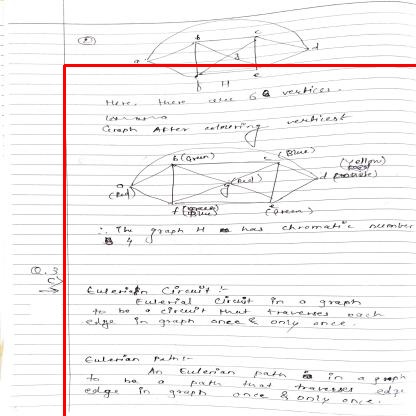 b
c
a
g
d
f
H
e
Here, there are 6 vertices.
Graph After colouring vertices
b(Green)
c (Blue)
(Yellow)
a
(Red)
g(Red)
d
f
Blue
e
(Green)
∴ The graph H has chromatic number
4
Q.3
c)
Eulerian Circuit :-
Eulerial Circuit in a graph
to be a circuit that traverses each
edge in graph once & only once.
Eulerian path:-
An Eulerian path is in a graph
to be a path that traverses edge
edge in graph once & only once.